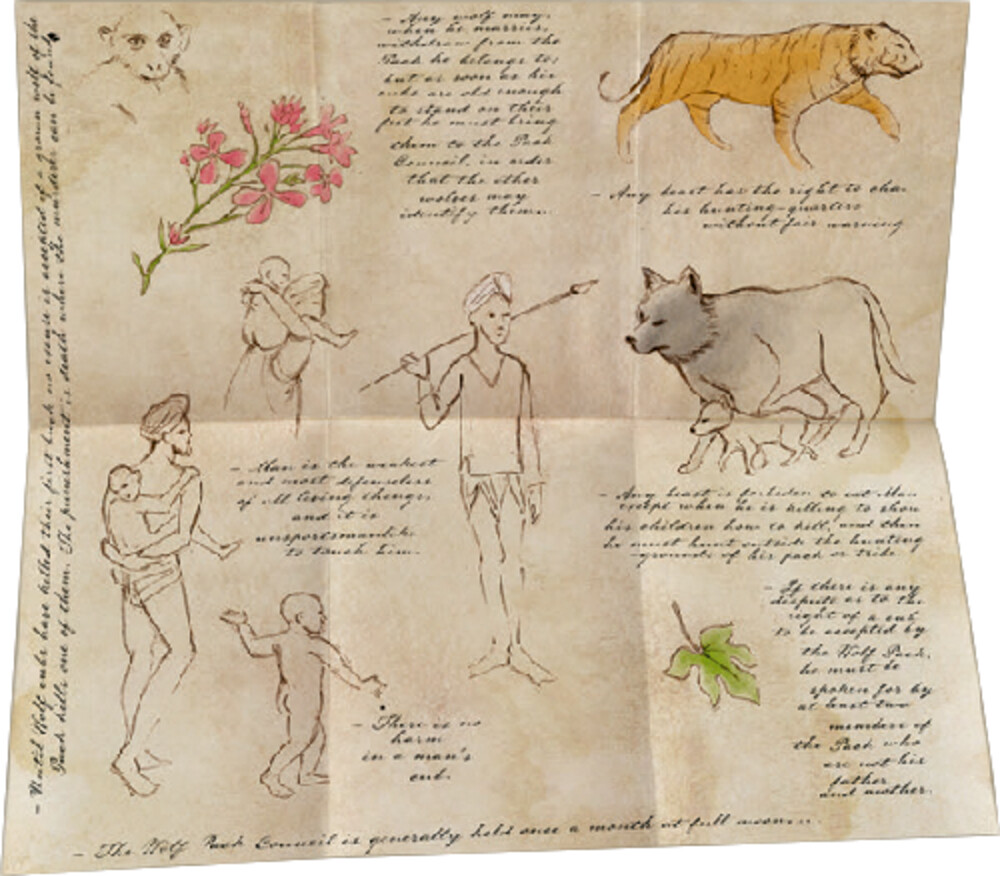 - Until Wolf cubs have killed their first buck no excuse is accepted if a grown wolf of the
Pack kills one of them. The punishment is death where the murderer can be found.
- Any wolf may,
when he marries,
withdraw from the
Pack he belongs to;
but as soon as his
cubs are old enough
to stand on their
feet he must bring
them to the Pack
Council, in order
that the other
wolves may
identify them.
- Any beast has the right to chan
his hunting-quarters
without fair warning
- Man is the weakest
and most defenseless
of all living things,
and it is
unsportsmanlike
to touch him.
- Any beast is forbidden to eat Man
except when he is killing to show
his children how to kill, and then
he must hunt outside the hunting
-grounds of his pack or tribe.
- If there is any
dispute as to the
right of a cub
to be accepted by
the Wolf Pack,
he must be
spoken for by
at least two
members of
the Pack who
are not his
father
and mother.
- There is no
harm
in a man's
cub.
- The Wolf Pack Council is generally held once a month at full moon.